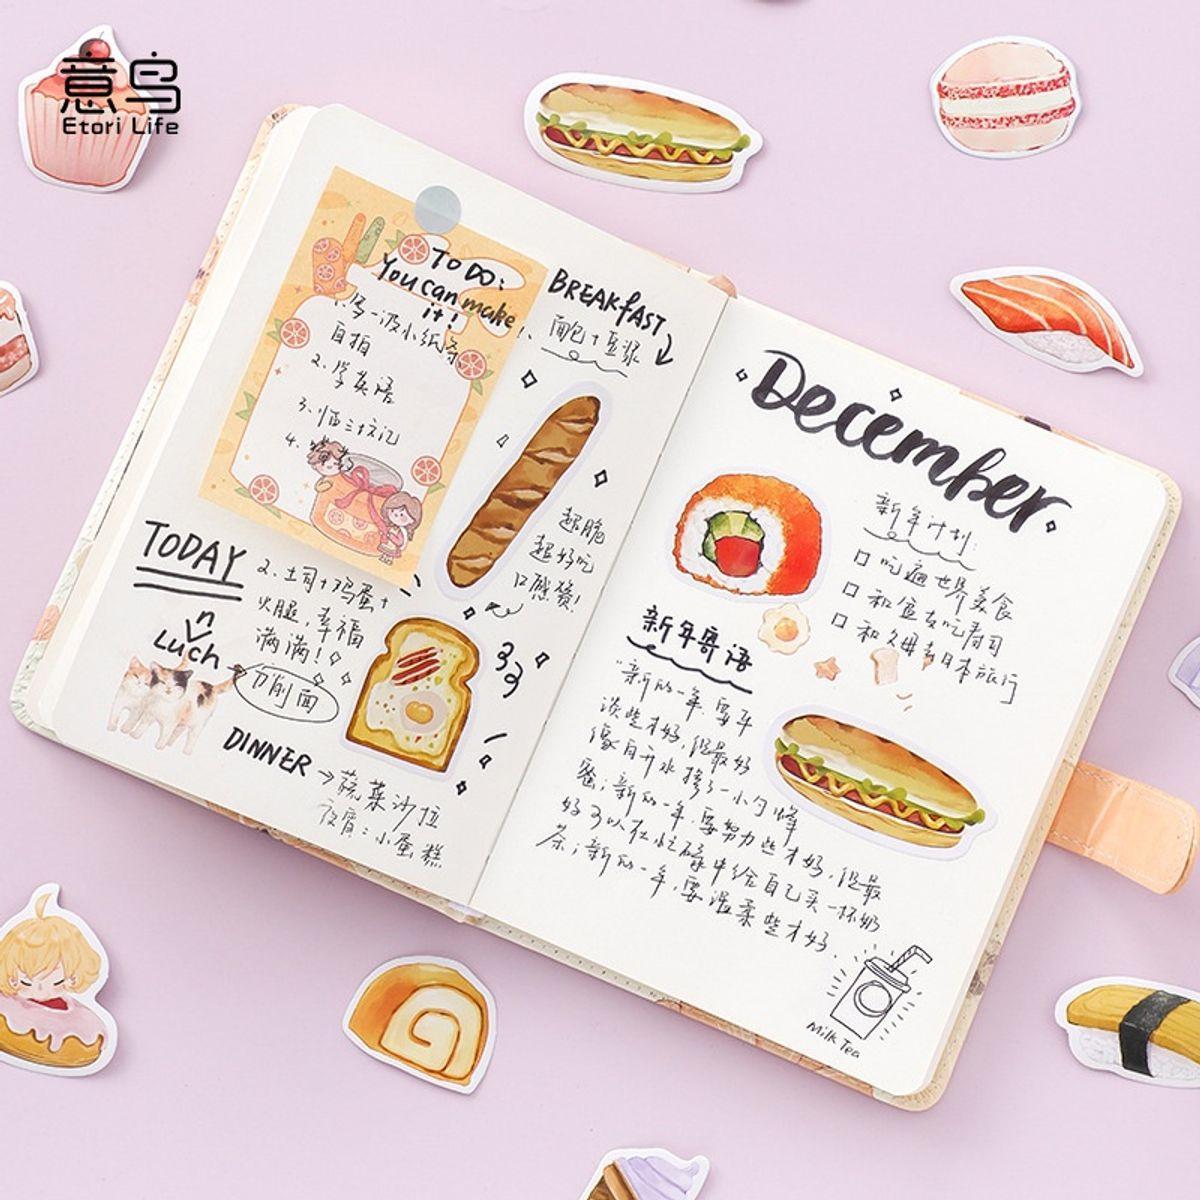 意鸟
Etori Life
TO DO:
You can make
it!
1. 写一波小纸条
自拍
2. 学英语
3.
4.
BREAKFAST
1. 面包+豆浆
超脆
超好吃
口感赞!
TODAY
2. 土司+鸡蛋+
火腿,幸福
满满!
Luch
n
刀削面
DINNER → 蔬菜沙拉
夜宵:小蛋糕
December
新年计划:
吃遍世界美食
和鱼去吃寿司
和父母去日本旅行
新年寄语
"新的一年,要平
淡些才好,但最好
像白开水掺了一小勺蜂
蜜;新的一年,要努力些才好,但最
好可以在忙碌中给自己买一杯奶
茶;新的一年,要温柔些才好.
Milk Tea